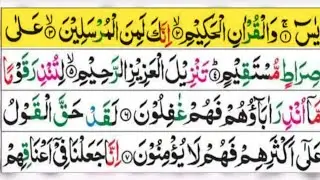 يٰسٓ ۚ﴿۱﴾ وَالْقُرْاٰنِ الْحَكِيْمِ ۙ﴿۲﴾ اِنَّكَ لَمِنَ الْمُرْسَلِيْنَ ۙ﴿۳﴾ عَلٰى
صِرَاطٍ مُّسْتَقِيْمٍ ؕ﴿۴﴾ تَنْزِيْلَ الْعَزِيْزِ الرَّحِيْمِ ۙ﴿۵﴾ لِتُنْذِرَ قَوْمًا
مَّاۤ اُنْذِرَ اٰبَآؤُهُمْ فَهُمْ غٰفِلُوْنَ ﴿۶﴾ لَقَدْ حَقَّ الْقَوْلُ
عَلٰۤى اَكْثَرِهِمْ فَهُمْ لَا يُؤْمِنُوْنَ ﴿۷﴾ اِنَّا جَعَلْنَا فِيْۤ اَعْنَاقِهِمْ